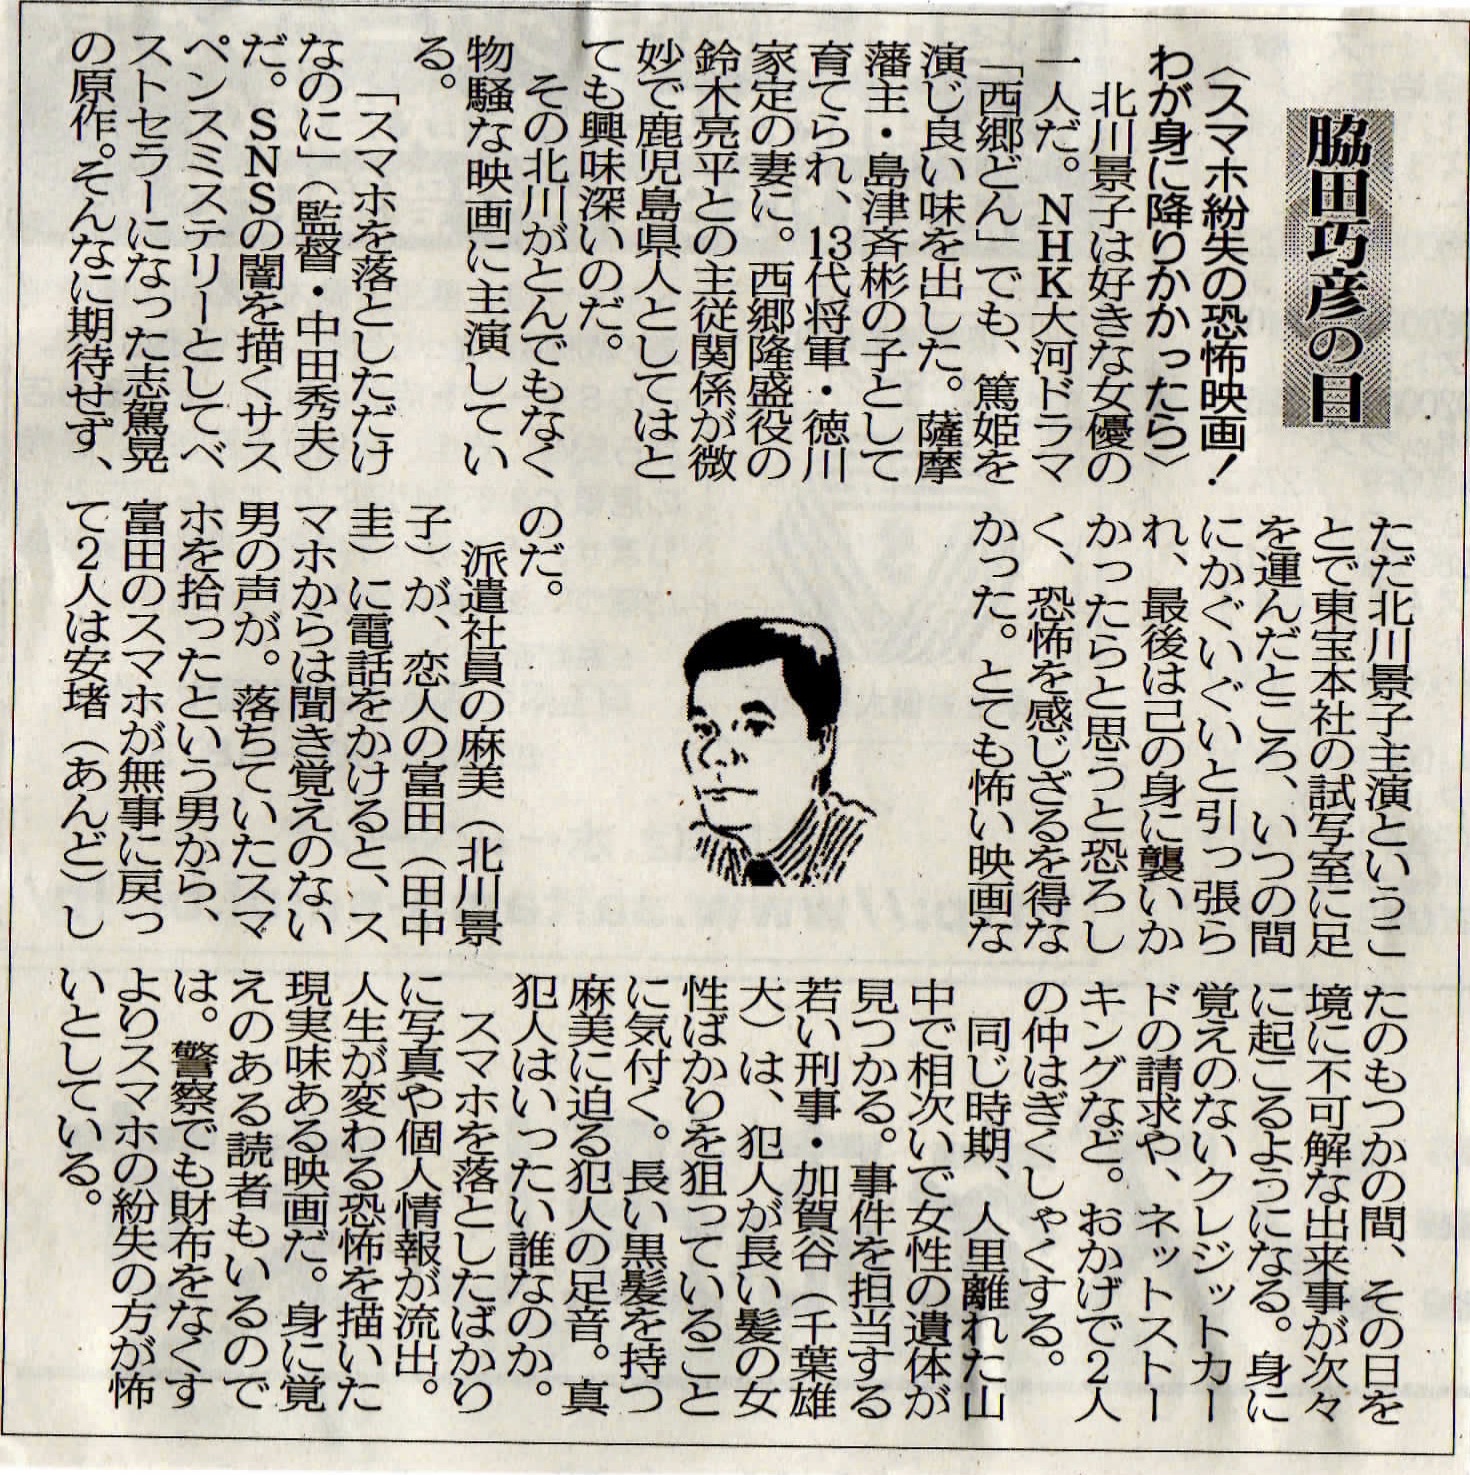 脇田巧彦の目
〈スマホ紛失の恐怖映画！
わが身に降りかかったら〉
北川景子は好きな女優の
一人だ。NHK大河ドラマ
「西郷どん」でも、篤姫を
演じ良い味を出した。薩摩
藩主・島津斉彬の子として
育てられ、13代将軍・徳川
家定の妻に。西郷隆盛役の
鈴木亮平との主従関係が微
妙で鹿児島県人としてはと
ても興味深いのだ。
その北川がとんでもなく
物騒な映画に主演してい
る。
「スマホを落としただけ
なのに」（監督・中田秀夫）
だ。SNSの闇を描くサス
ペンスミステリーとしてベ
ストセラーになった志駕晃
の原作。そんなに期待せず、
ただ北川景子主演というこ
とで東宝本社の試写室に足
を運んだところ、いつの間
にかぐいぐいと引っ張ら
れ、最後は己の身に襲いか
かったらと思うと恐ろし
く、恐怖を感じざるを得な
かった。とても怖い映画な
のだ。
派遣社員の麻美（北川景
子）が、恋人の富田（田中
圭）に電話をかけると、ス
マホからは聞き覚えのない
男の声が。落ちていたスマ
ホを拾ったという男から、
富田のスマホが無事に戻っ
て2人は安堵（あんど）し
たのもつかの間、その日を
境に不可解な出来事が次々
に起こるようになる。身に
覚えのないクレジットカー
ドの請求や、ネットストー
キングなど。おかげで2人
の仲はぎくしゃくする。
同じ時期、人里離れた山
中で相次いで女性の遺体が
見つかる。事件を担当する
若い刑事・加賀谷（千葉雄
大）は、犯人が長い髪の女
性ばかりを狙っていること
に気付く。長い黒髪を持つ
麻美に迫る犯人の足音。真
犯人はいったい誰なのか。
スマホを落としたばかり
に写真や個人情報が流出。
人生が変わる恐怖を描いた
現実味ある映画だ。身に覚
えのある読者もいるので
は。警察でも財布をなくす
よりスマホの紛失の方が怖
いとしている。